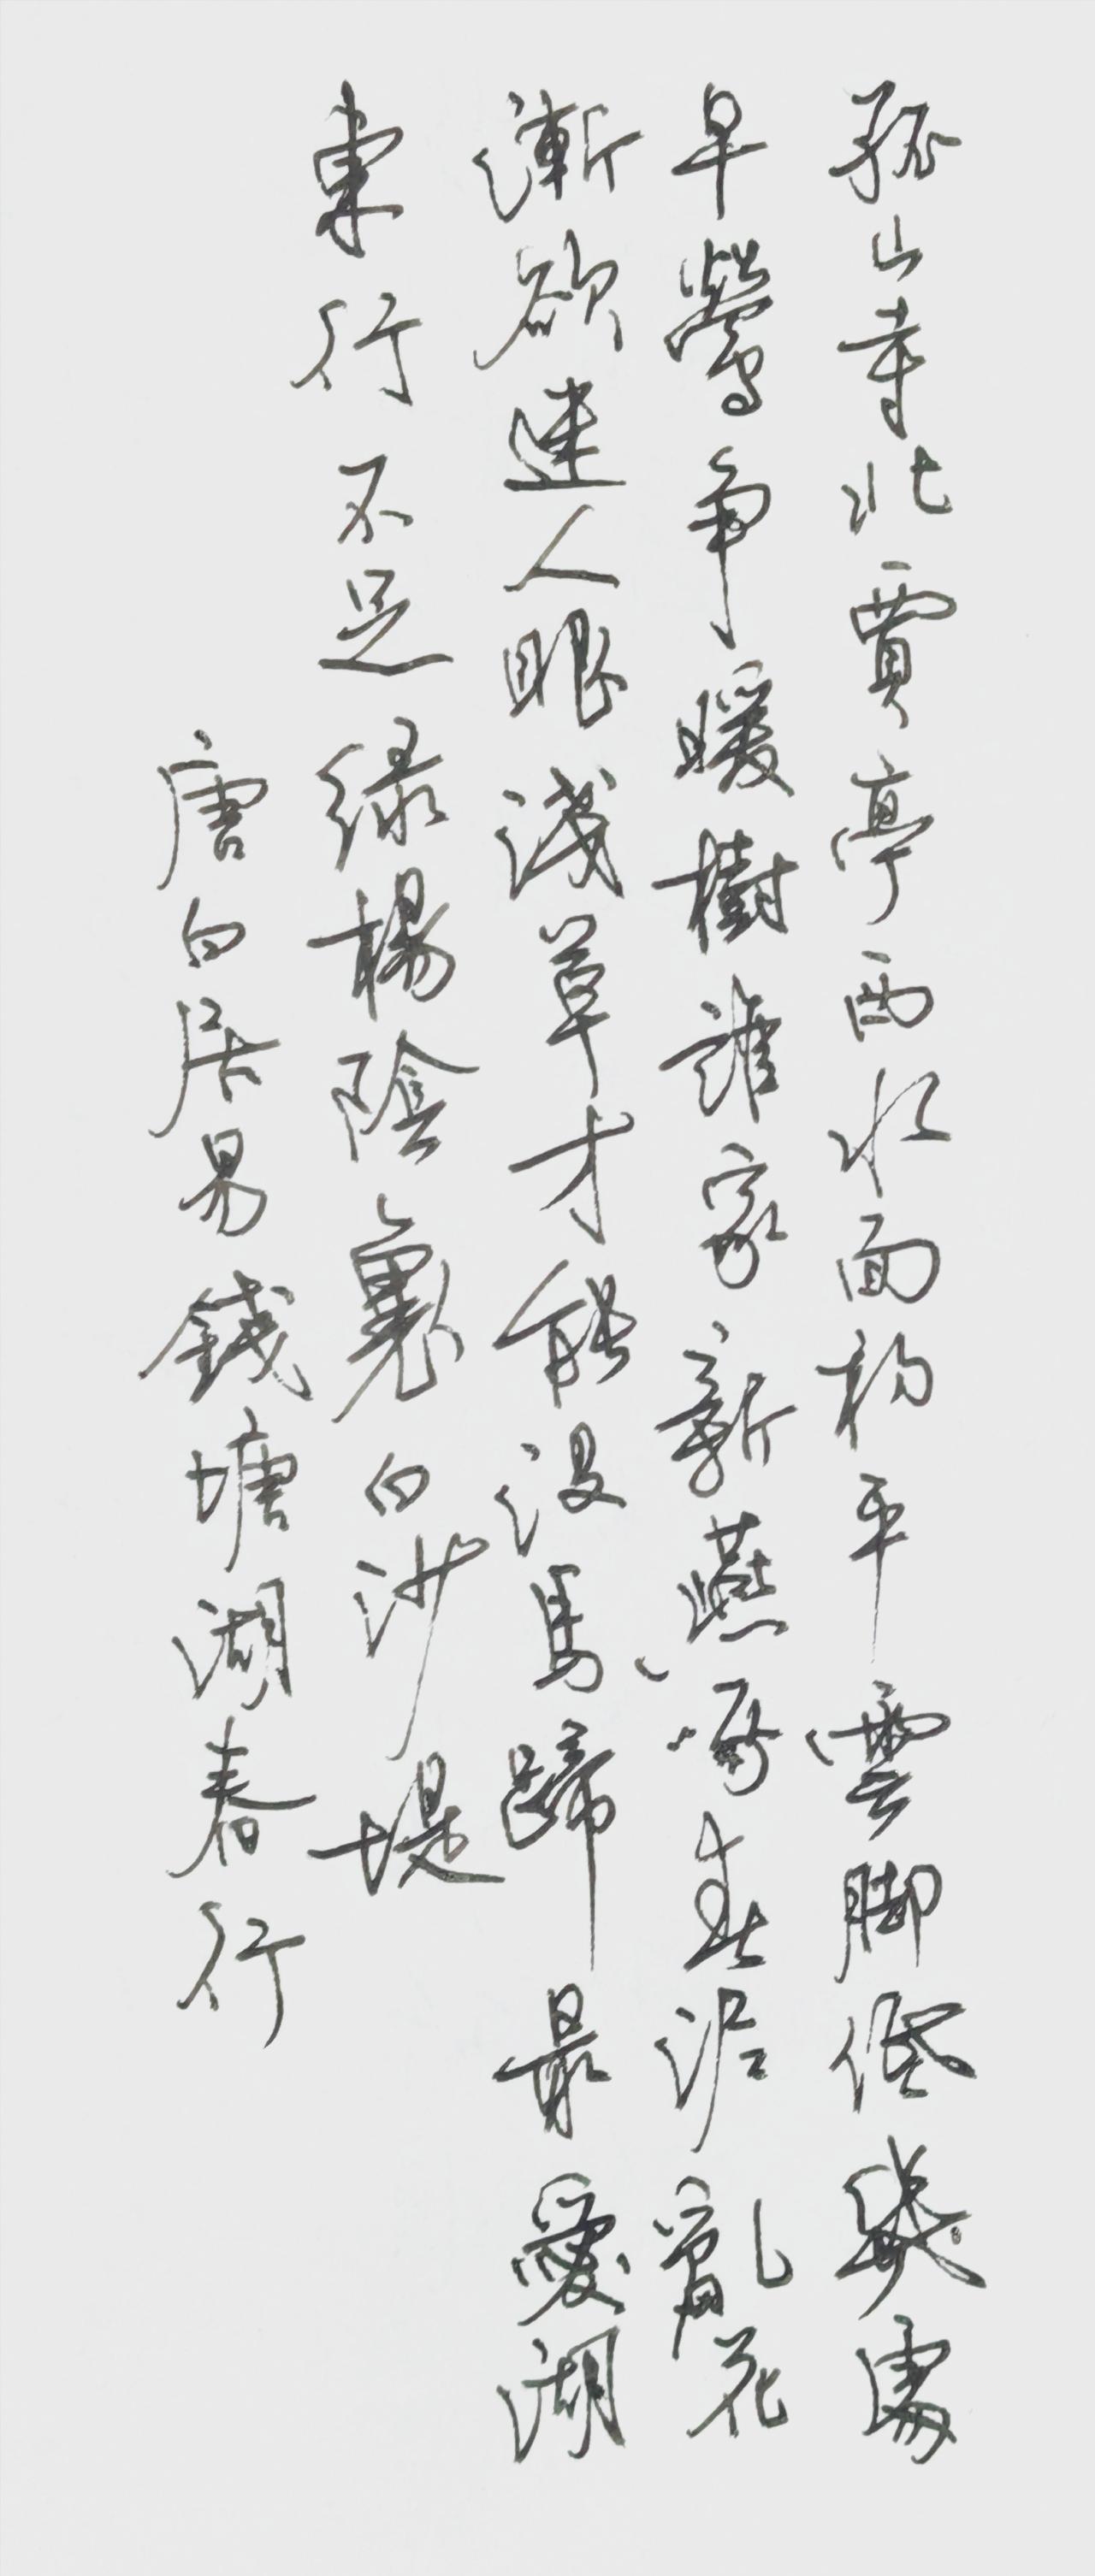 孤山寺北賈亭西水面初平雲脚低幾處
早鶯争暖樹誰家新燕啄春泥亂花
漸欲迷人眼淺草才能没馬蹄最愛湖
東行不足緑楊陰裏白沙堤
唐白居易錢塘湖春行